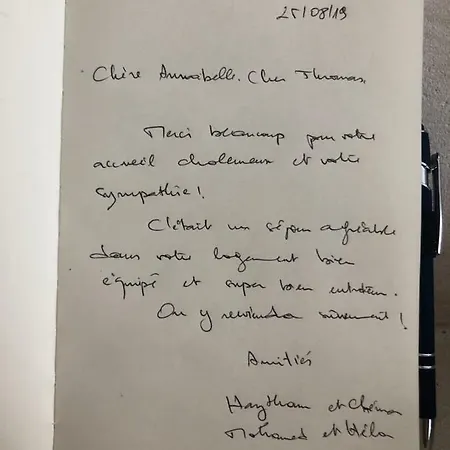 25/08/19
Chère Annabelle. Cher Thomas.
Merci beaucoup pour votre
accueil chaleureux et votre
sympathie!
C'était un séjour agréable
dans votre logement bien
équipé et super bien entretenu.
On y reviendra sûrement!
Amitiés
Haytham et
Mohamed et